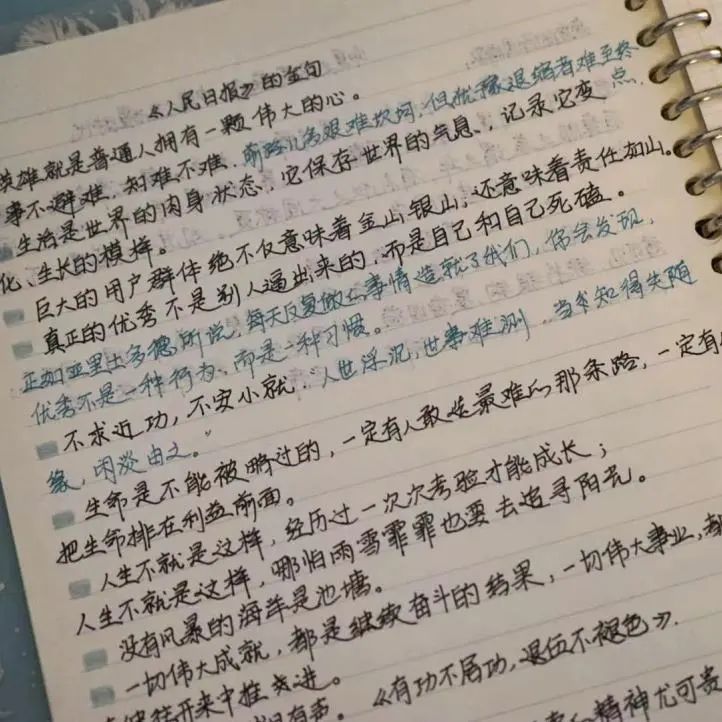 《人民日报》的金句
英雄就是普通人拥有一颗伟大的心。
事不避难，知难不难，前路儿为艰难坎坷，但犹豫退缩者难至终点，
生活是世界的肉身状态，它保存世界的气息，记录它变
化、生长的模样。
巨大的用户群体绝不仅意味着金山银山，还意味着责任如山。
真正的优秀不是别人逼出来的，而是自己和自己死磕。
正如亚里士多德所说，每天反复做的事情造就了我们，你会发现，
优秀不是一种行为，而是一种习惯。
不求近功，不安小就，"人世浮沉，世事难测，当少知得失随
缘，闲淡由之。"
生命是不能被略过的，一定有人敢走最难的那条路，一定有
把生命排在利益前面。
人生不就是这样，经历过一次次考验才能成长；
人生不就是这样，哪怕雨雪霏霏也要去追寻阳光。
没有风暴的海洋是池塘。
一切伟大成就，都是继续奋斗的结果，一切伟大事业，都
往开来中推进。
《有功不居功，退伍不褪色》.
精神尤可贵